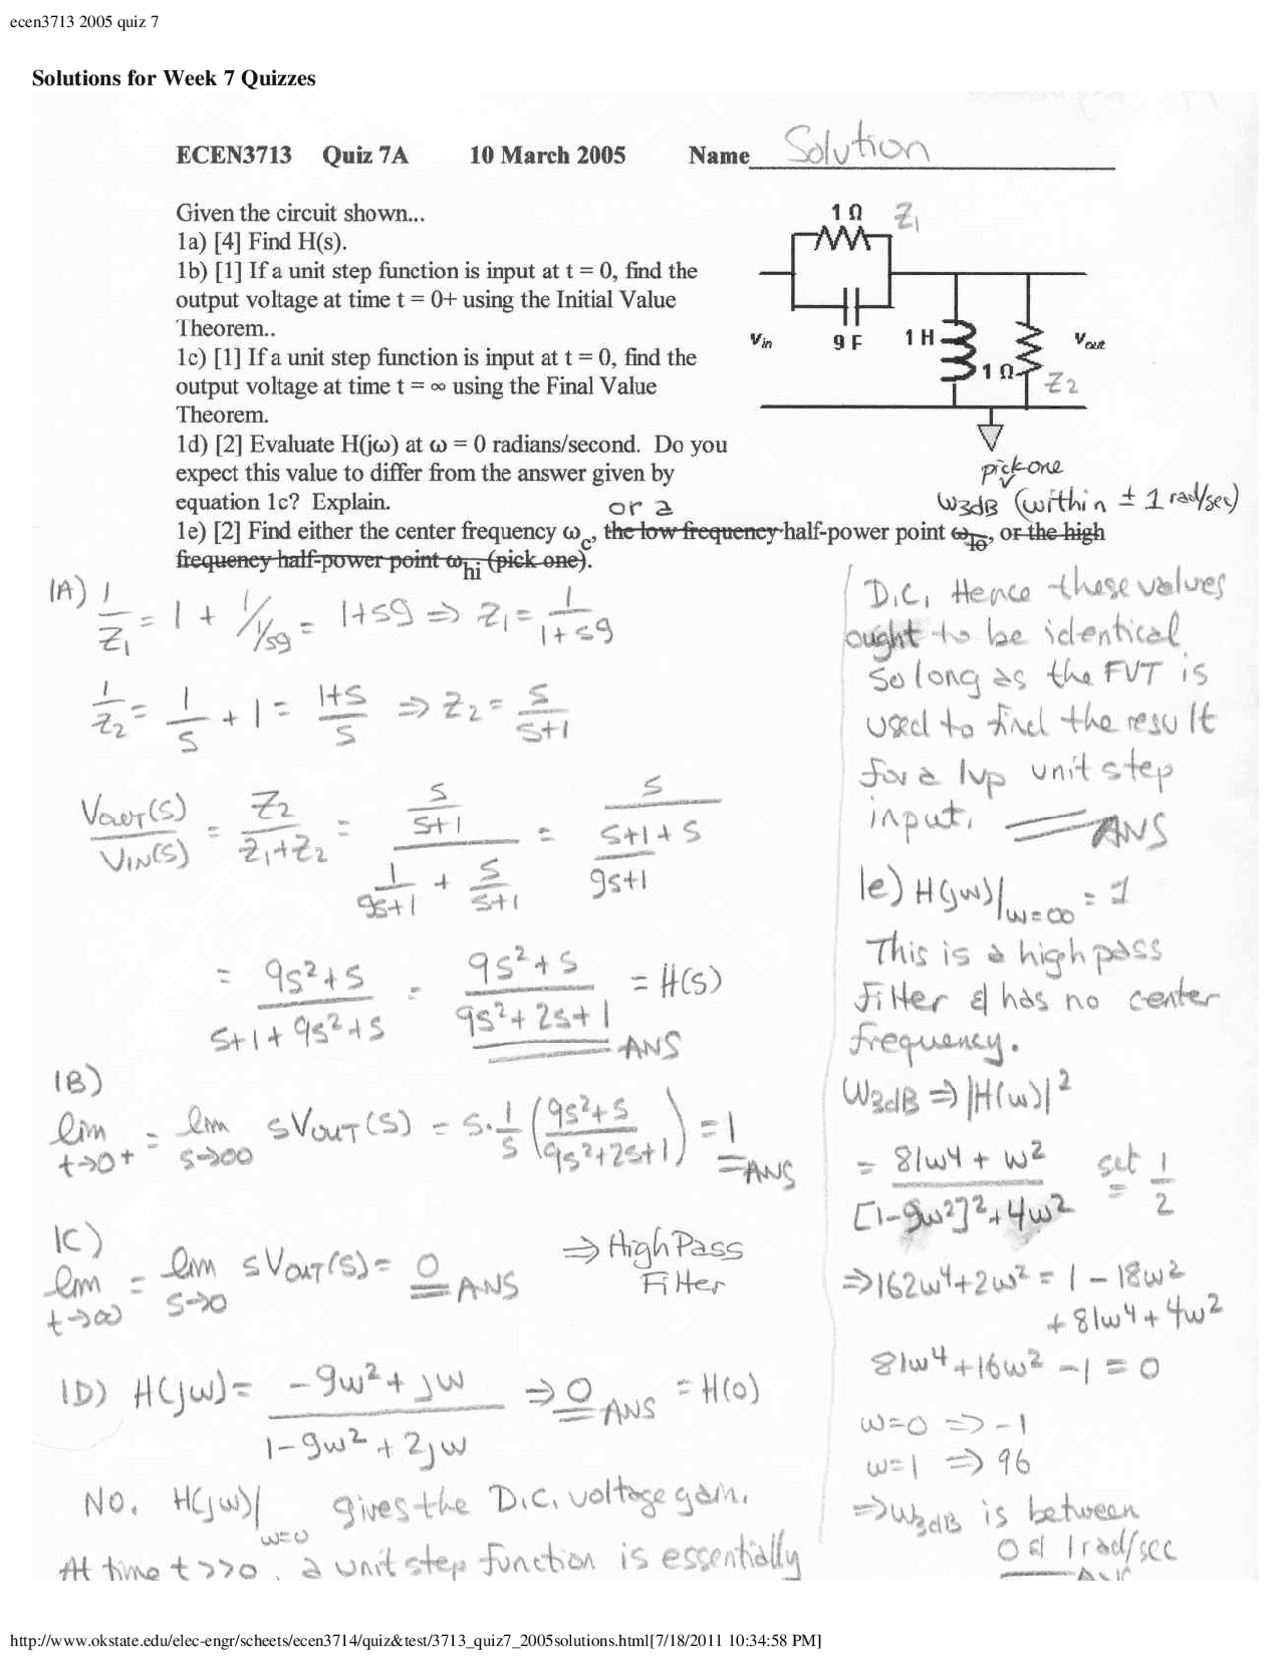 ecen3713 2005 quiz 7
Solutions for Week 7 Quizzes
ECEN3713 Quiz 7A 10 March 2005 Name Solution
Given the circuit shown...
1a) [4] Find H(s).
1b) [1] If a unit step function is input at t = 0, find the
output voltage at time t = 0+ using the Initial Value
Theorem..
1c) [1] If a unit step function is input at t = 0, find the
output voltage at time t = ∞ using the Final Value
Theorem.
1d) [2] Evaluate H(jω) at ω = 0 radians/second. Do you
expect this value to differ from the answer given by
equation 1c? Explain.
or a
1e) [2] Find either the center frequency ωc, the low frequency half-power point ωlo, or the high
frequency half-power point ωhi (pick one).
1 Ω Z1
Vin 9 F 1 H 1 Ω Vout
Z2
pick one
W3dB (within ± 1 rad/sec)
1A) 1/Z1 = 1 + 1/(1/s9) = 1+s9 ⇒ Z1 = 1/(1+s9)
1/Z2 = 1/s + 1 = (1+s)/s ⇒ Z2 = s/(s+1)
VOUT(s)/VIN(s) = Z2/(Z1+Z2) = (s/(s+1))/(1/(9s+1) + s/(s+1)) = s/((s+1)/(9s+1) + s)
= (9s²+s)/(s+1+9s²+s) = (9s²+s)/(9s²+2s+1) = H(s)
ANS
1B)
lim t→0+ = lim s→∞ sVOUT(s) = s·1/s ((9s²+s)/(9s²+2s+1)) = 1
ANS
1C)
lim t→∞ = lim s→0 sVOUT(s) = 0 ANS
⇒ High Pass
Filter
1D) H(jw) = (-9w²+jw)/(1-9w²+2jw) ⇒ 0 ANS = H(0)
No. H(jw)|w=0 gives the D.C. voltage gain.
At time t>>0, a unit step function is essentially
D.C. Hence these values
ought to be identical
so long as the FVT is
used to find the result
for a 1vp unit step
input. ANS
1e) H(jw)|w=∞ = 1
This is a high pass
filter & has no center
frequency.
W3dB ⇒ |H(w)|²
= (81w⁴ + w²)/([1-9w²]²+4w²) set = 1/2
⇒ 162w⁴+2w² = 1 - 18w²
+ 81w⁴ + 4w²
81w⁴ + 16w² - 1 = 0
w=0 ⇒ -1
w=1 ⇒ 96
⇒ W3dB is between
0 & 1 rad/sec
ANS
http://www.okstate.edu/elec-engr/scheets/ecen3714/quiz&test/3713_quiz7_2005solutions.html[7/18/2011 10:34:58 PM]